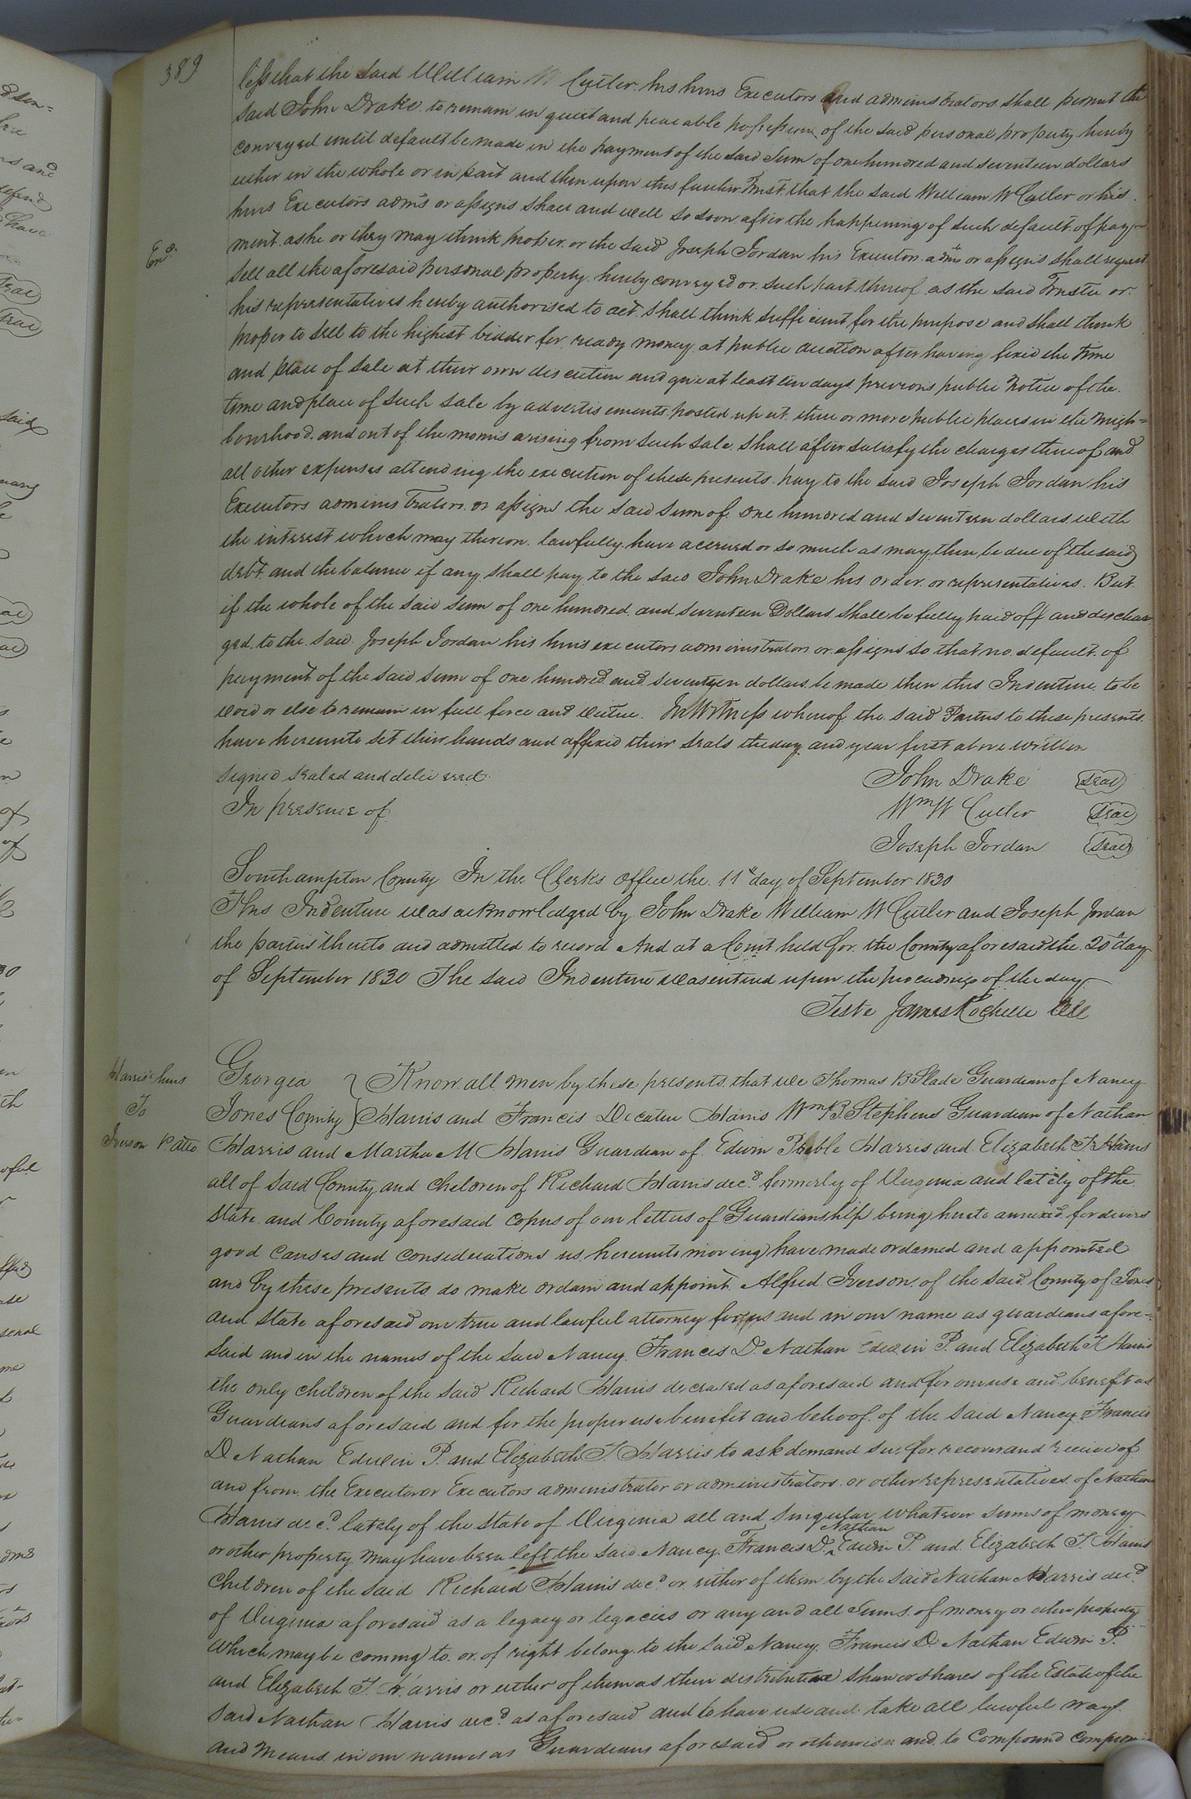 389
less that the said William W Cutler his heirs Executors and administrators shall permit the
said John Drake to remain in quiet and peaceable possession of the said personal property hereby
conveyed until default be made in the payment of the said Sum of one hundred and seventeen dollars
either in the whole or in part and then upon this further Trust that the said William W Cutler or his
heirs Executors adms or assigns shall and will so soon after the happening of such default of pay-
Exd.
ment as he or they may think proper or the said Joseph Jordan his Executors adms or assigns shall request
sell all the aforesaid personal property hereby conveyed or such part thereof as the said Trustee or
his representatives hereby authorised to act shall think sufficient for the purpose and shall think
proper to sell to the highest bidder for ready money at public auction after having fixed the time
and place of sale at their own discretion and give at least ten days previous public notice of the
time and place of such sale by advertisements posted up at three or more public places in the neigh-
bourhood and out of the monies arising from such sale shall after satisfy the charges thereof and
all other expenses attending the execution of these presents pay to the said Joseph Jordan his
Executors administrators or assigns the said sum of one hundred and seventeen dollars with
the interest which may thereon lawfully have accrued or so much as may then be due of the said
debt and the balance if any shall pay to the said John Drake his order or representatives. But
if the whole of the said sum of one hundred and seventeen Dollars shall be fully paid off and dischar
ged to the said Joseph Jordan his heirs executors administrators or assigns so that no default of
payment of the said sum of one hundred and seventeen dollars be made then this Indenture to be
void or else to remain in full force and virtue. In Witness whereof the said Parties to these presents
have hereunto set their hands and affixed their seals the day and year first above written
Signed sealed and delivered
John Drake (Seal)
In presence of
Wm W Cutler (Seal)
Joseph Jordan (Seal)
Southampton County In the Clerks Office the 11th day of September 1830
This Indenture was acknowledged by John Drake William W Cutler and Joseph Jordan
the parties thereto and admitted to record And at a Court held for the County aforesaid the 20th day
of September 1830 The said Indenture was entered upon the proceedings of the day
Teste James Rochelle Clk
Harris' heirs
To
Iverson P atto
Georgia } Know all men by these presents that we Thomas B Slade Guardian of Nancy
Jones County } Harris and Francis Decatur Harris Wm B Stephens Guardian of Nathan
Harris and Martha M Harris Guardian of Edwin Preble Harris and Elizabeth T Harris
all of said County and children of Richard Harris decd. formerly of Virginia and lately of the
State and County aforesaid copies of our letters of Guardianship being hereto annexed for divers
good causes and considerations us hereunto moving have made ordained and appointed
and by these presents do make ordain and appoint Alfred Iverson of the said County of Jones
and State aforesaid our true and lawful attorney for us and in our name as guardians afore-
said and in the names of the said Nancy Francis D Nathan Edwin P. and Elizabeth T Harris
the only children of the said Richard Harris deceased as aforesaid and for our use and benefit as
Guardians aforesaid and for the proper use benefit and behoof of the said Nancy Francis
D Nathan Edwin P. and Elizabeth T Harris to ask demand sue for recover and receive of
and from the Executor or Executors administrator or administrators or other representatives of Nathan
Harris decd. lately of the State of Virginia all and singular whatever sums of money
or other property may have been left the said Nancy Francis D. Nathan Edwin P and Elizabeth T. Harris
children of the said Richard Harris decd or either of them by the said Nathan Harris decd.
of Virginia aforesaid as a legacy or legacies or any and all Sums of money or other property
which may be coming to or of right belong to the said Nancy Francis D. Nathan Edwin P.
and Elizabeth T. Harris or either of them as their distributive share or shares of the Estate of the
said Nathan Harris decd. as aforesaid and to have use and take all lawful ways
and means in our names as Guardians aforesaid or otherwise and to compound